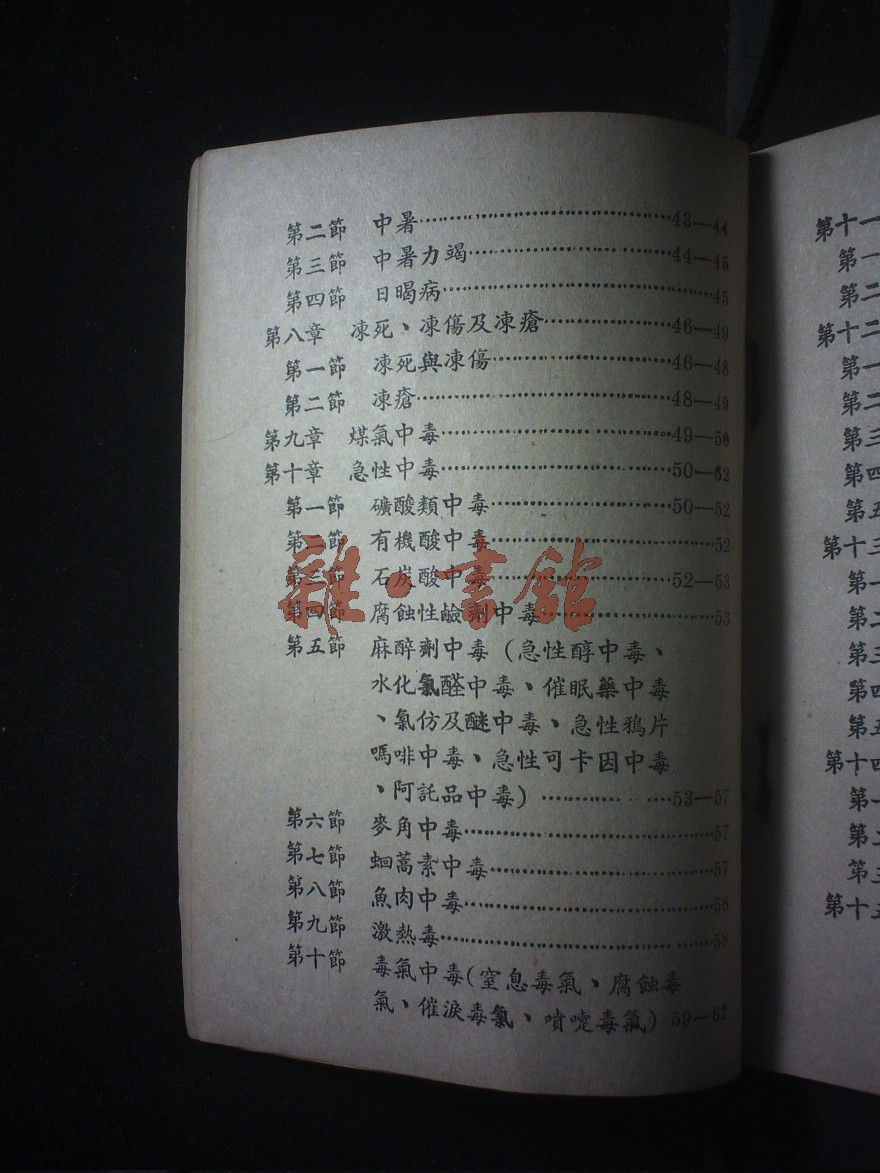 第二節 中暑……43—44
第三節 中暑力竭……44—45
第四節 日暍病……45
第八章 凍死、凍傷及凍瘡……46—49
第一節 凍死與凍傷……46—48
第二節 凍瘡……48—49
第九章 煤氣中毒……49—50
第十章 急性中毒……50—62
第一節 礦酸類中毒……50—52
第二節 有機酸中毒……52
第三節 石炭酸中毒……52—53
第四節 腐蝕性鹼劑中毒……53
第五節 麻醉劑中毒(急性醇中毒、
水化氯醛中毒、催眠藥中毒
、氯仿及醚中毒、急性鴉片
嗎啡中毒、急性可卡因中毒
、阿託品中毒)……53—57
第六節 麥角中毒……57
第七節 蛔蒿素中毒……57
第八節 魚肉中毒……58
第九節 激熱毒……58
第十節 毒氣中毒(窒息毒氣、腐蝕毒
氣、催淚毒氣、噴嚏毒氣)59—62
雜·書館
第十一
第一
第二
第十二
第一
第二
第三
第四
第五
第十三
第一
第二
第三
第四
第五
第十四
第一
第二
第三
第十五